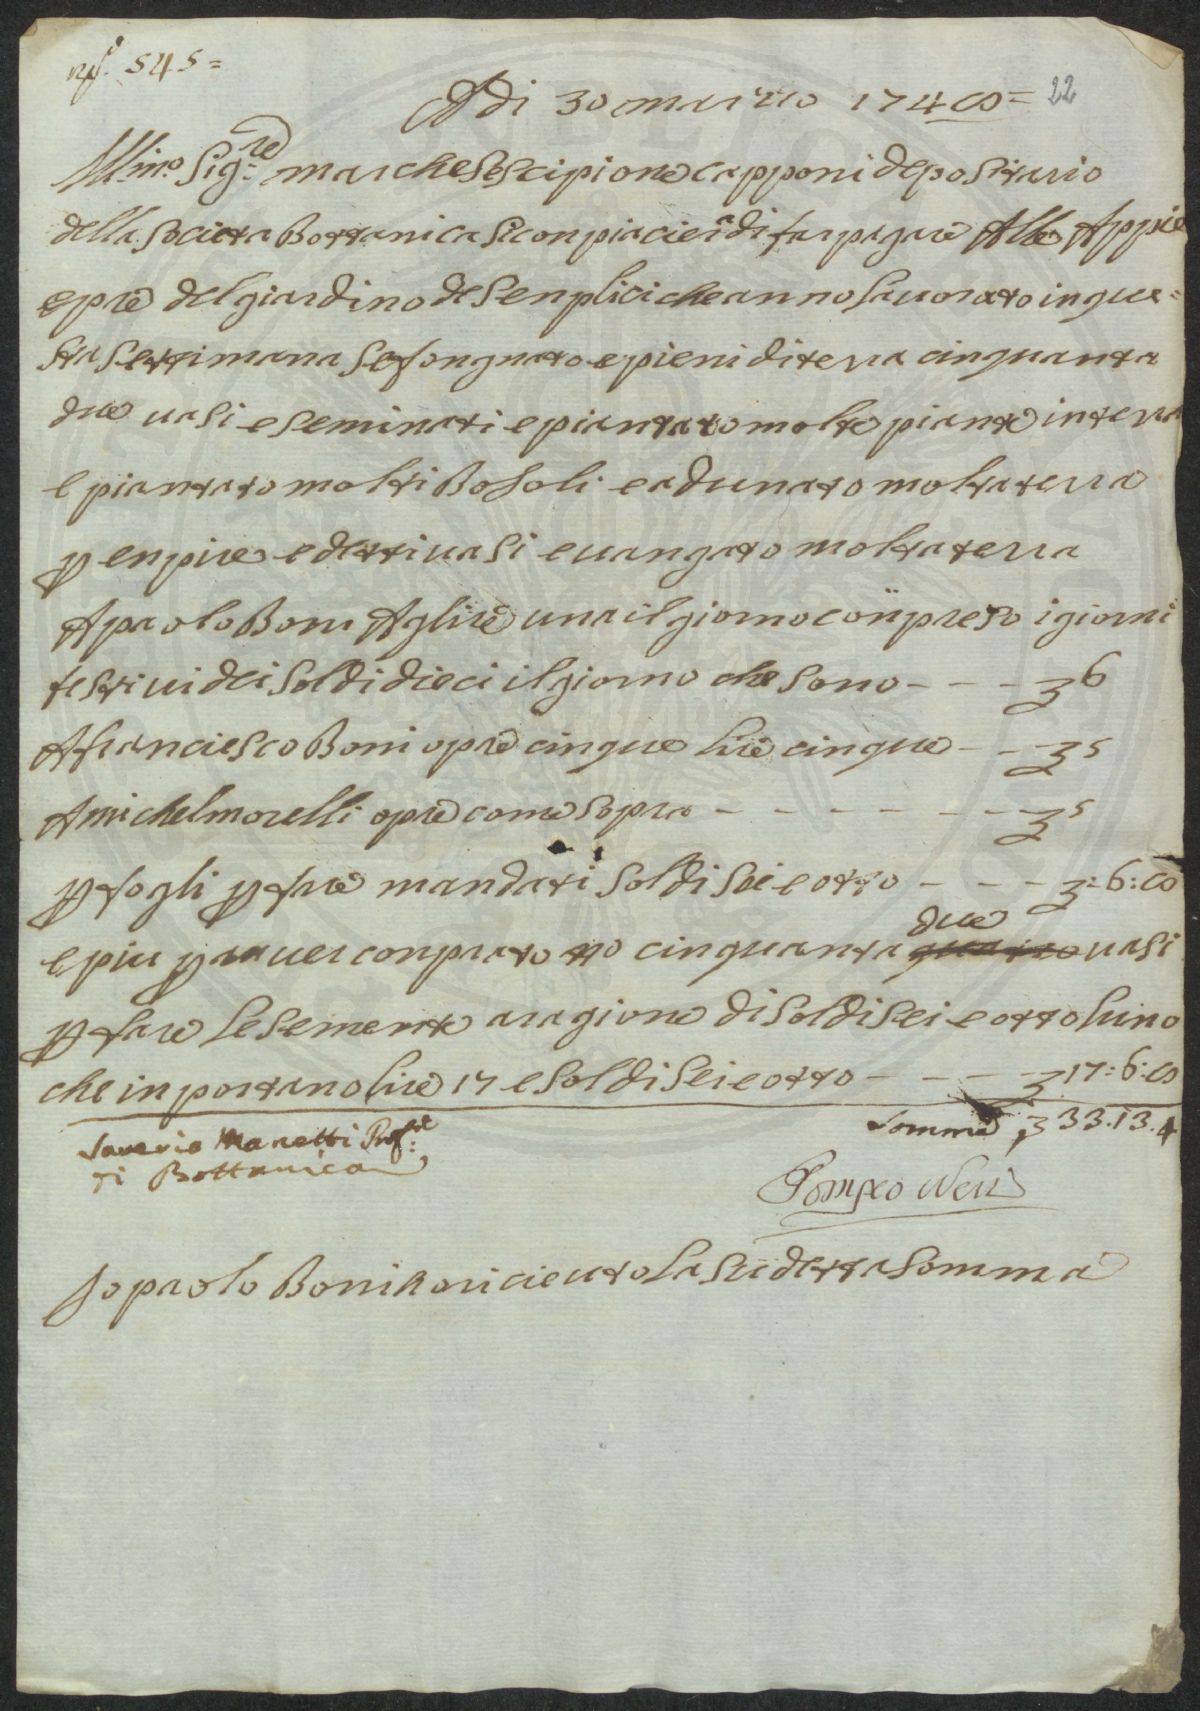 n.º 545=
Adi 30 marzzo 1748= 22
Ill.mo Sig.re marchese scipione capponi depositario
della societa Bottanica Si conpiacierà di far pagare Alle Appie
e opre del giardino de Senplici che anno lavorato in que=
sta settimana Se fongnato e pieni di terra cinquanta
due uasi e seminati e piantato molte piante in terra
e piantato molti Bosoli e adunato molta terra
p enpire e detti uasi e uangato molta terra
A paolo Boni A lire una il giorno conpreso i giorni
festiui dei soldi dieci il giorno che sono - - - 6
A franciesco Boni opre cinque lire cinque - - 5
A michel morelli opre come sopra - - - - - - - 5
p fogli p fare mandati soldi sei e otto - - - : 6 : 8
e piu p auer conprato no cinquanta due uasi
p fare le semente a ragione di soldi sei e otto luno
che inportano lire 17 e soldi sei e otto - - - - 17 : 6 : 8
Somma 33.13.4
Saverio Manetti Prof.e
di Bottanica
Pompeo Neri
Io paolo Boni o riceuto la sudetta somma